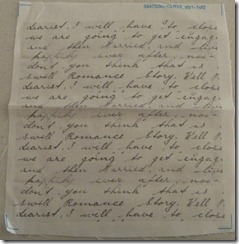 dearest, I will have to close
we are going to get engag
and then Married, and live
happily ever after, now
don't you think that is a
swell Romance Story. Well I
dearest, I will have to close
we are going to get engag
and then Married, and live
happily ever after, now
don't you think that is a
swell Romance Story. Well I
dearest, I will have to close
we are going to get engag
and then Married, and live
happily ever after, now
don't you think that is a
swell Romance Story. Well I
dearest, I will have to close